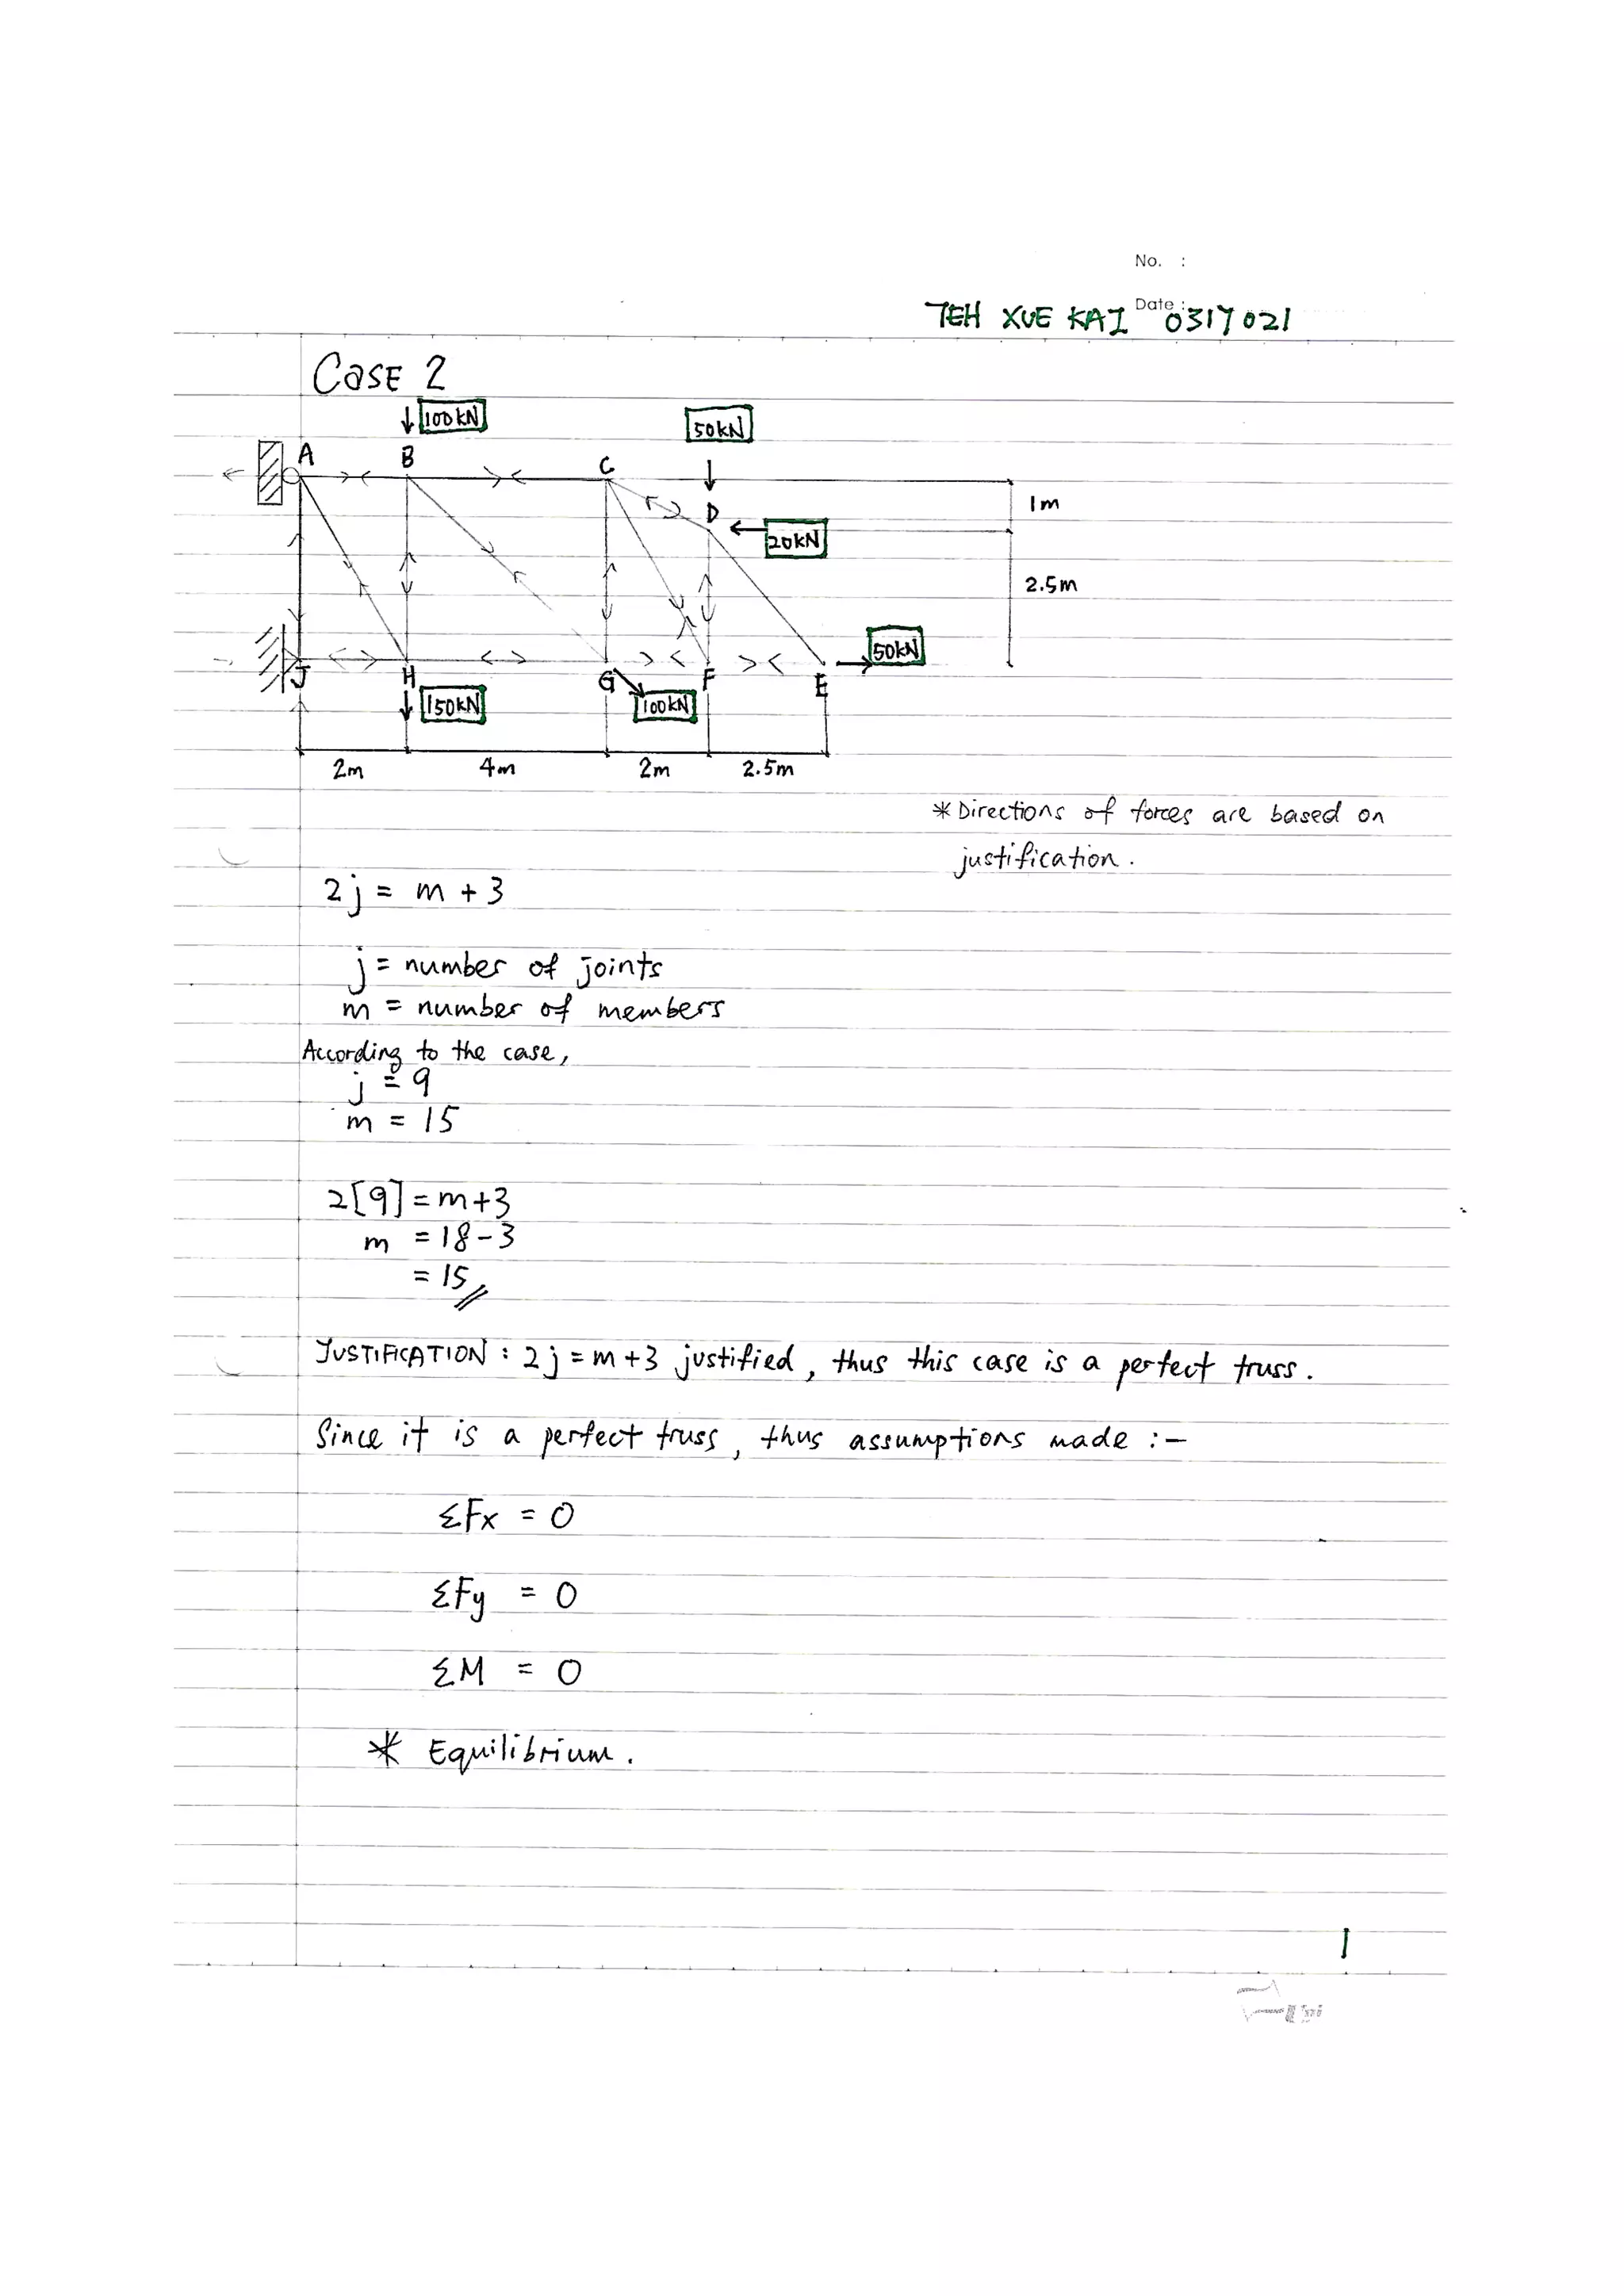 No. :
Date :
TEH XUE KAI 0317021
Case 2
100kN
50kN
A
B
C
1m
D
20kN
2.5m
50kN
J
H
G
F
E
150kN
100kN
2m
4m
2m
2.5m
* Directions of forces are based on
justification.
2j = m + 3
j = number of joints
m = number of members
According to the case,
j = 9
m = 15
2[9] = m+3
m = 18-3
= 15
JUSTIFICATION : 2j = m+3 justified, thus this case is a perfect truss.
Since it is a perfect truss, thus assumptions made :-
ΣFx = 0
ΣFy = 0
ΣM = 0
* Equilibrium.
1